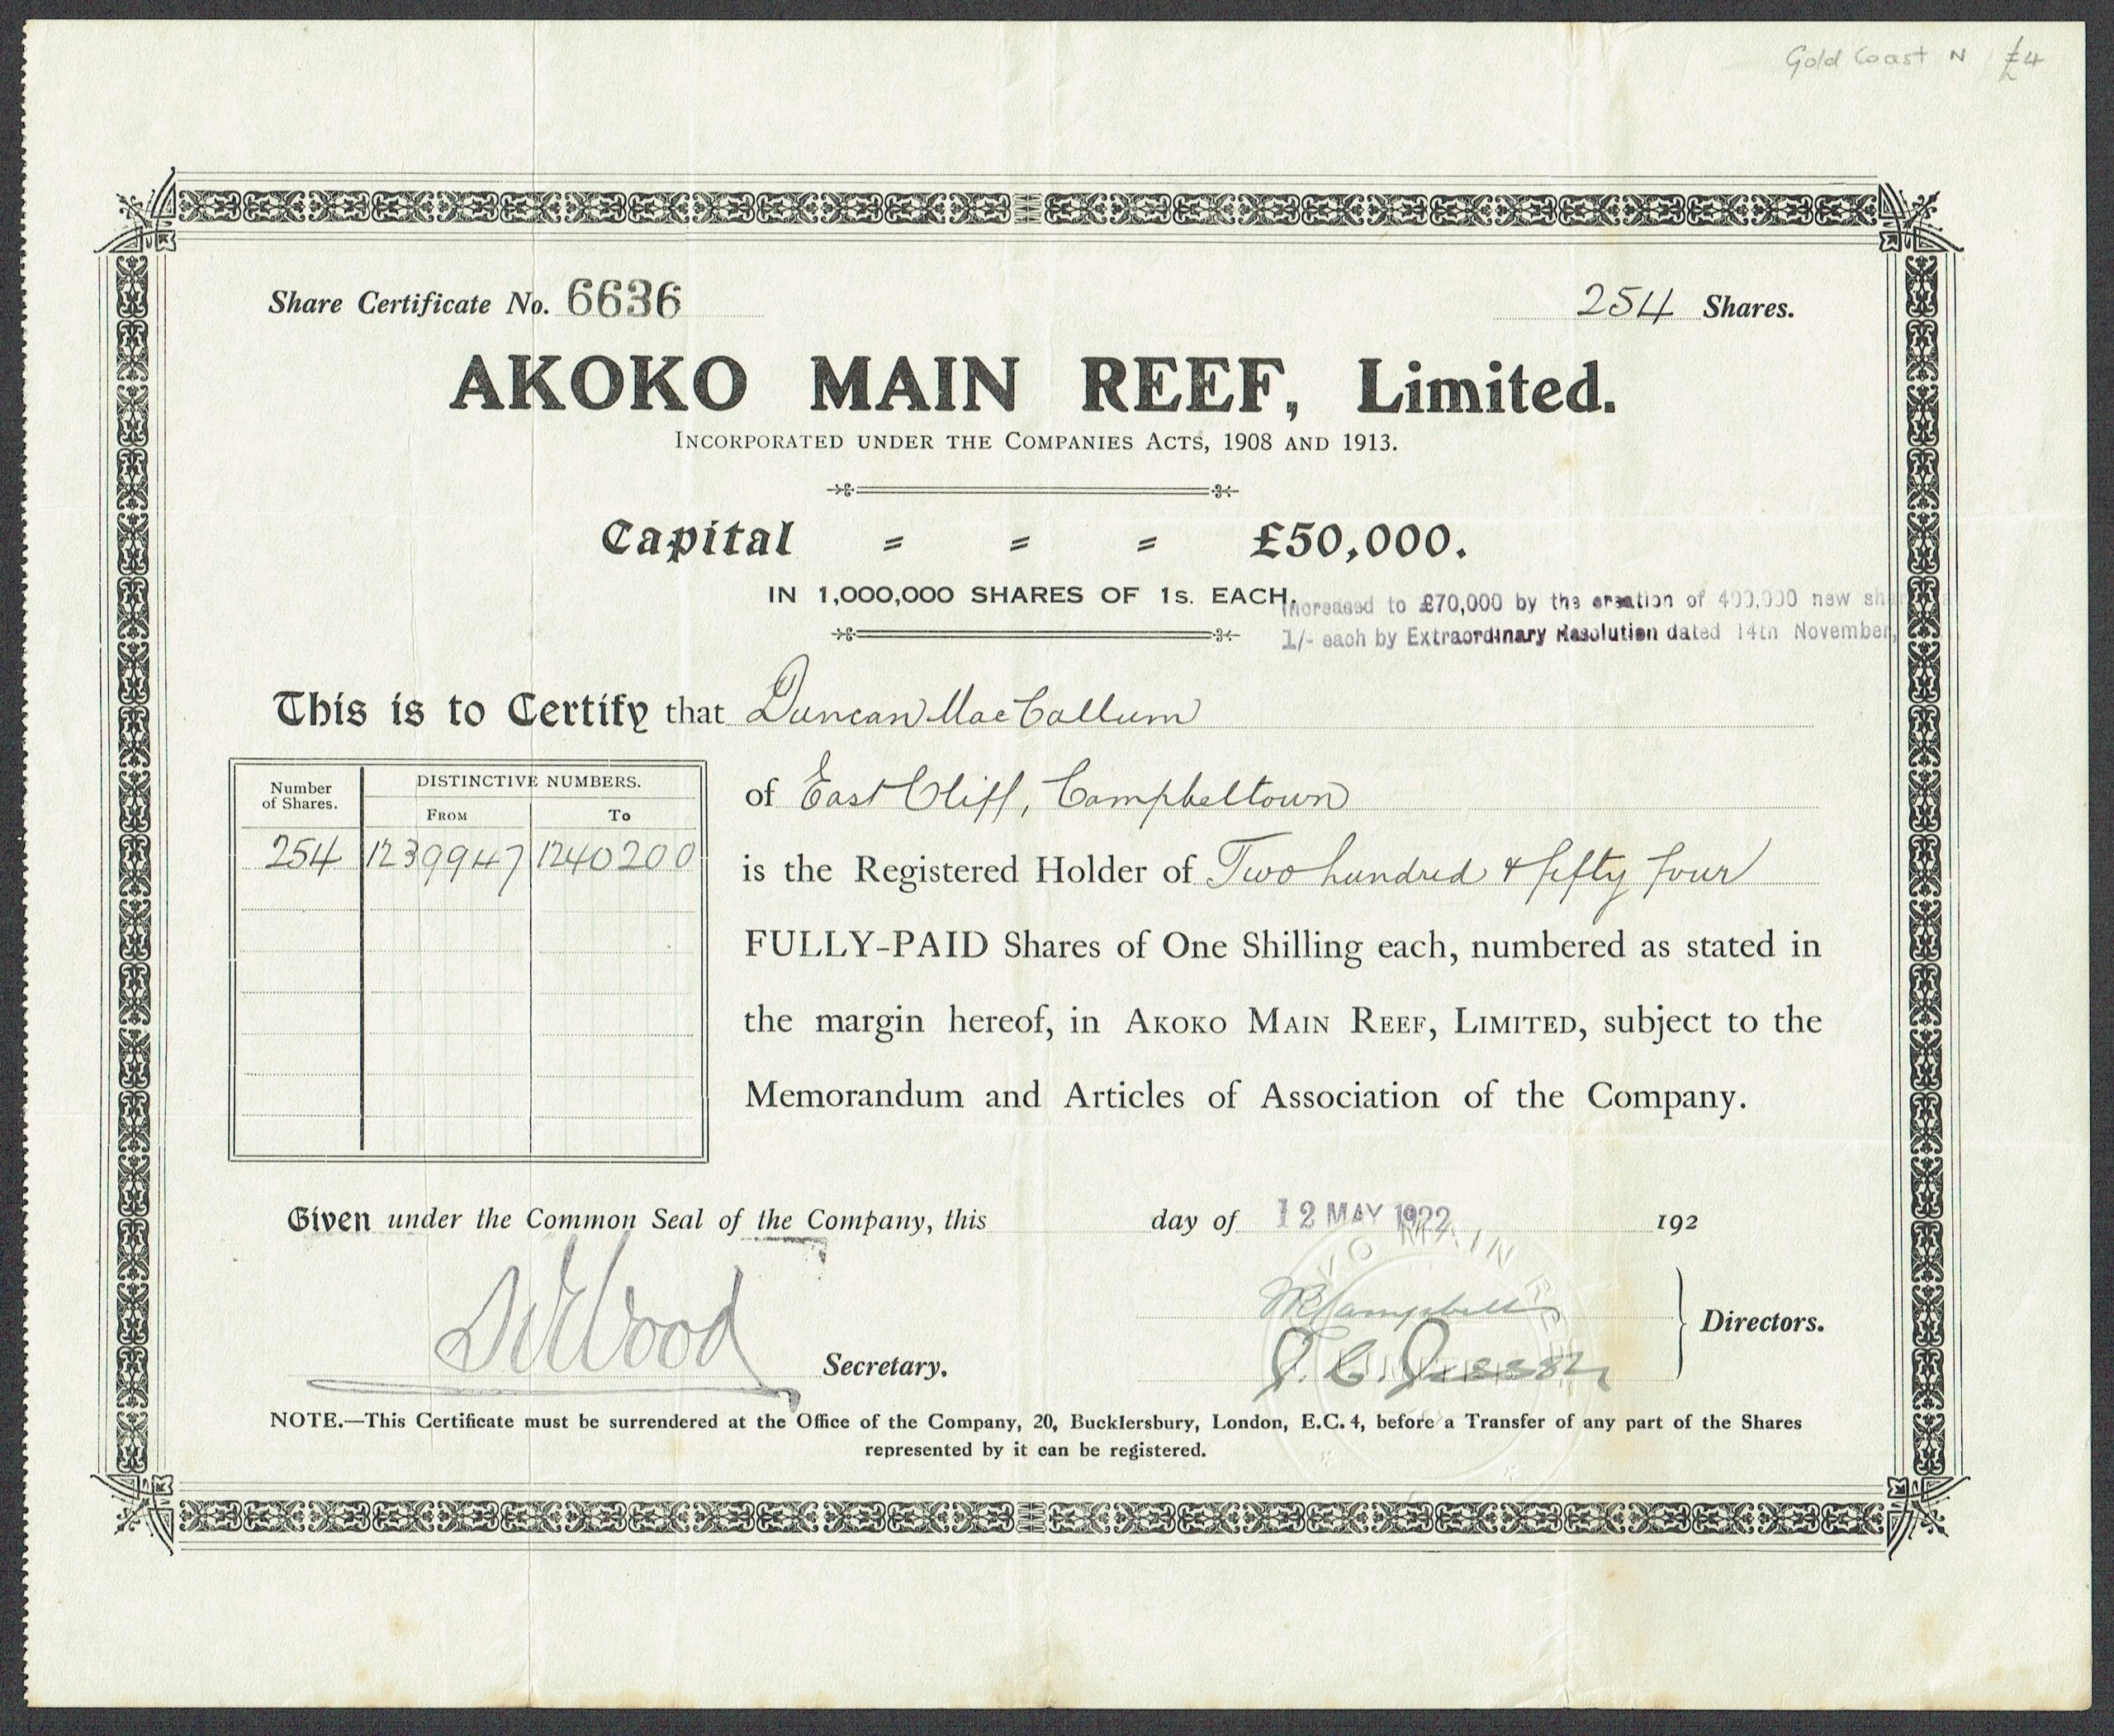 Gold Coast N £4
Share Certificate No. 6636
254 Shares.
AKOKO MAIN REEF, Limited.
INCORPORATED UNDER THE COMPANIES ACTS, 1908 AND 1913.
Capital = = = £50,000.
IN 1,000,000 SHARES OF 1s. EACH.
Increased to £70,000 by the creation of 400,000 new sha
1/- each by Extraordinary Resolution dated 14th November,
This is to Certify that Duncan MacCallum
of East Cliff, Campbeltown
is the Registered Holder of Two hundred & fifty four
FULLY-PAID Shares of One Shilling each, numbered as stated in
the margin hereof, in AKOKO MAIN REEF, LIMITED, subject to the
Memorandum and Articles of Association of the Company.
Number of Shares.
DISTINCTIVE NUMBERS.
FROM To
254 1239947 1240200
Given under the Common Seal of the Company, this day of 12 MAY 1922 192
Wood
Secretary.
Campbell
Directors.
KO MAIN REEF
NOTE.—This Certificate must be surrendered at the Office of the Company, 20, Bucklersbury, London, E.C. 4, before a Transfer of any part of the Shares
represented by it can be registered.